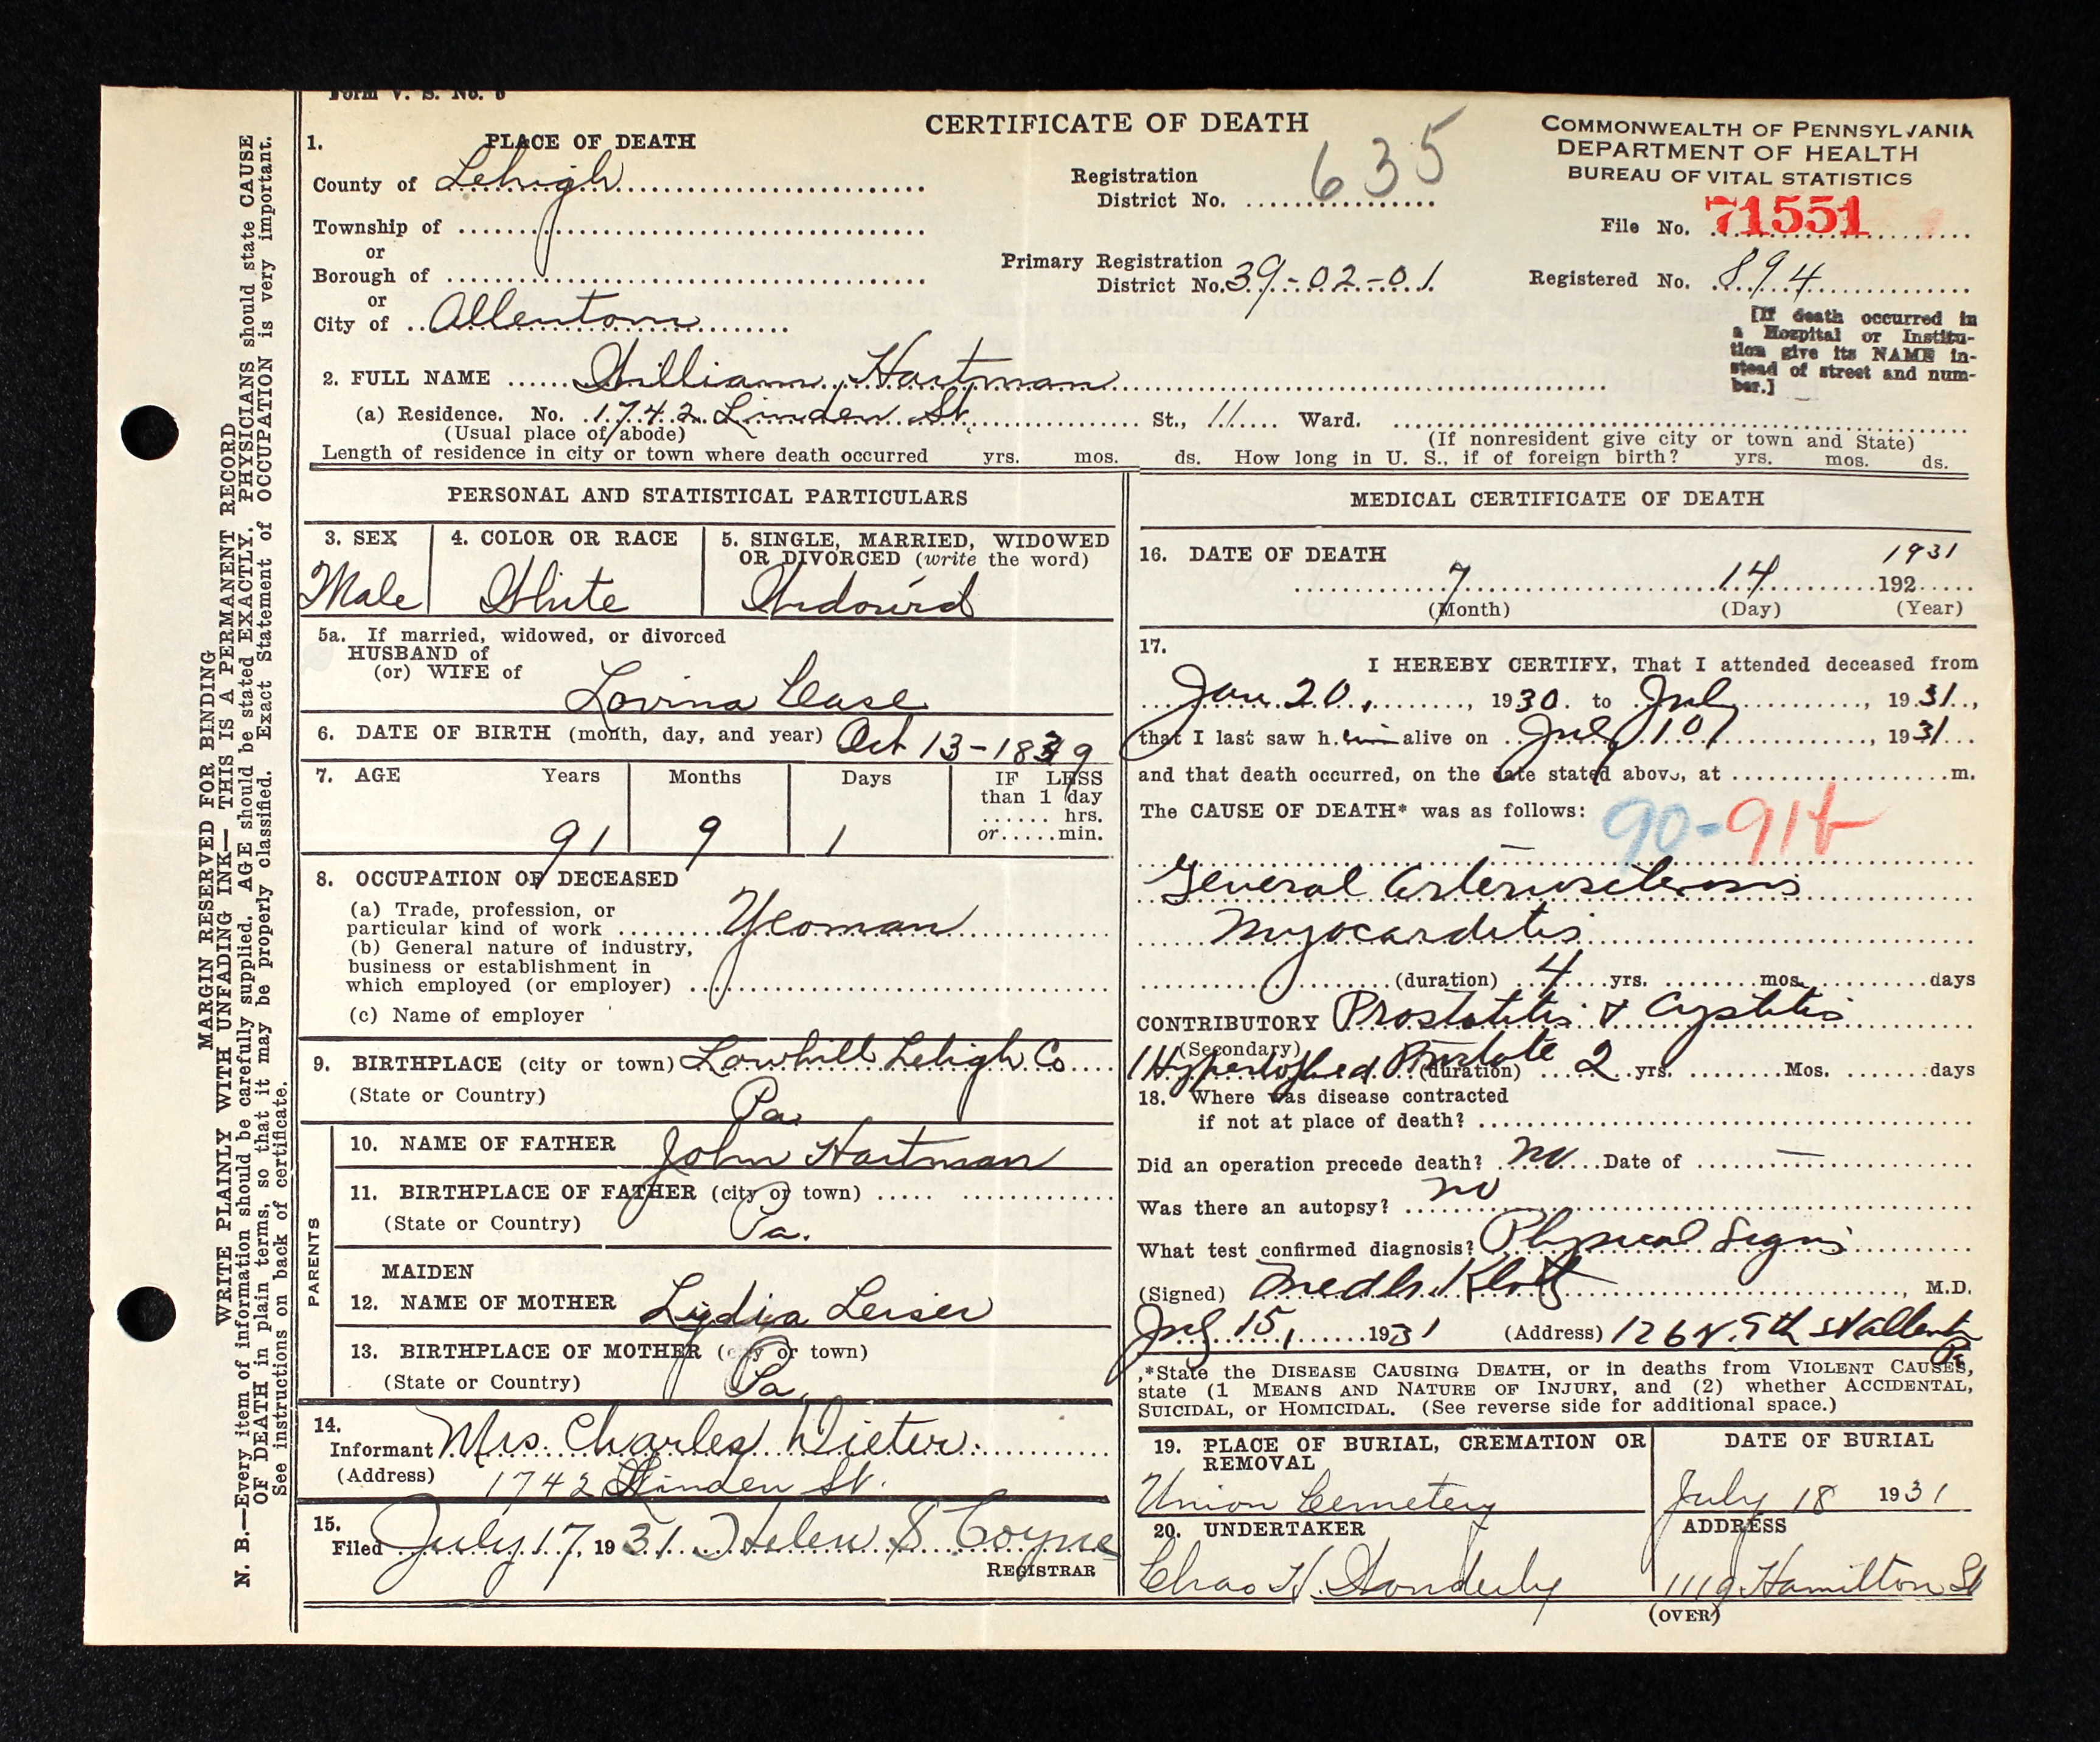 Form V. S. No. 5
CERTIFICATE OF DEATH
COMMONWEALTH OF PENNSYLVANIA
DEPARTMENT OF HEALTH
BUREAU OF VITAL STATISTICS
1. PLACE OF DEATH
County of Lehigh
Township of
or
Borough of
or
City of Allentown
Registration
District No. 635
Primary Registration
District No. 39-02-01
File No. 71551
Registered No. 894
[If death occurred in
a Hospital or Institu-
tion give its NAME in-
stead of street and num-
ber.]
2. FULL NAME William Hartman
(a) Residence. No. 1742 Linden St. St., 11 Ward.
(Usual place of abode) (If nonresident give city or town and State)
Length of residence in city or town where death occurred yrs. mos. ds. How long in U. S., if of foreign birth? yrs. mos. ds.
PERSONAL AND STATISTICAL PARTICULARS
3. SEX
Male
4. COLOR OR RACE
White
5. SINGLE, MARRIED, WIDOWED
OR DIVORCED (write the word)
Widow'd
5a. If married, widowed, or divorced
HUSBAND of
(or) WIFE of
Lovina
6. DATE OF BIRTH (month, day, and year) Oct 13-1839
7. AGE Years Months Days IF LESS
than 1 day
hrs.
or min.
91 9 1
8. OCCUPATION OF DECEASED
(a) Trade, profession, or
particular kind of work Yeoman
(b) General nature of industry,
business or establishment in
which employed (or employer)
(c) Name of employer
9. BIRTHPLACE (city or town) Lowhill Lehigh Co
(State or Country) Pa.
PARENTS
10. NAME OF FATHER John Hartman
11. BIRTHPLACE OF FATHER (city or town)
(State or Country) Pa.
MAIDEN
12. NAME OF MOTHER Lydia Leiser
13. BIRTHPLACE OF MOTHER (city or town)
(State or Country) Pa.
14.
Informant Mrs. Charles Dieter.
(Address) 1742 Linden St.
15.
Filed July 17, 1931 Helen S Coyne
REGISTRAR
MEDICAL CERTIFICATE OF DEATH
16. DATE OF DEATH 1931
7 14 192
(Month) (Day) (Year)
17.
I HEREBY CERTIFY, That I attended deceased from
Jan 20, 1930 to July, 1931,
that I last saw him alive on July 10, 1931
and that death occurred, on the date stated above, at m.
The CAUSE OF DEATH* was as follows:
90-91b
General Arteriosclerosis
Myocarditis
(duration) 4 yrs. mos. days
CONTRIBUTORY Prostatitis & Cystitis
(Secondary)
Prostate (duration) 2 yrs. Mos. days
18. Where was disease contracted
if not at place of death?
Did an operation precede death? no Date of —
Was there an autopsy? no
What test confirmed diagnosis? Physical Signs
(Signed) Klotz, M.D.
July 15, 1931 (Address) 126 N. 9th St Allent
Pa
*State the DISEASE CAUSING DEATH, or in deaths from VIOLENT CAUSES,
state (1 MEANS AND NATURE OF INJURY, and (2) whether ACCIDENTAL,
SUICIDAL, or HOMICIDAL. (See reverse side for additional space.)
19. PLACE OF BURIAL, CREMATION OR
REMOVAL
Union Cemetery
DATE OF BURIAL
July 18 1931
20. UNDERTAKER
Chas H. Wonderly
ADDRESS
1119 Hamilton St
(OVER)
MARGIN RESERVED FOR BINDING
WRITE PLAINLY WITH UNFADING INK—THIS IS A PERMANENT RECORD
N. B.—Every item of information should be carefully supplied. AGE should be stated EXACTLY. PHYSICIANS should state CAUSE
OF DEATH in plain terms, so that it may be properly classified. Exact Statement of OCCUPATION is very important.
See instructions on back of certificate.